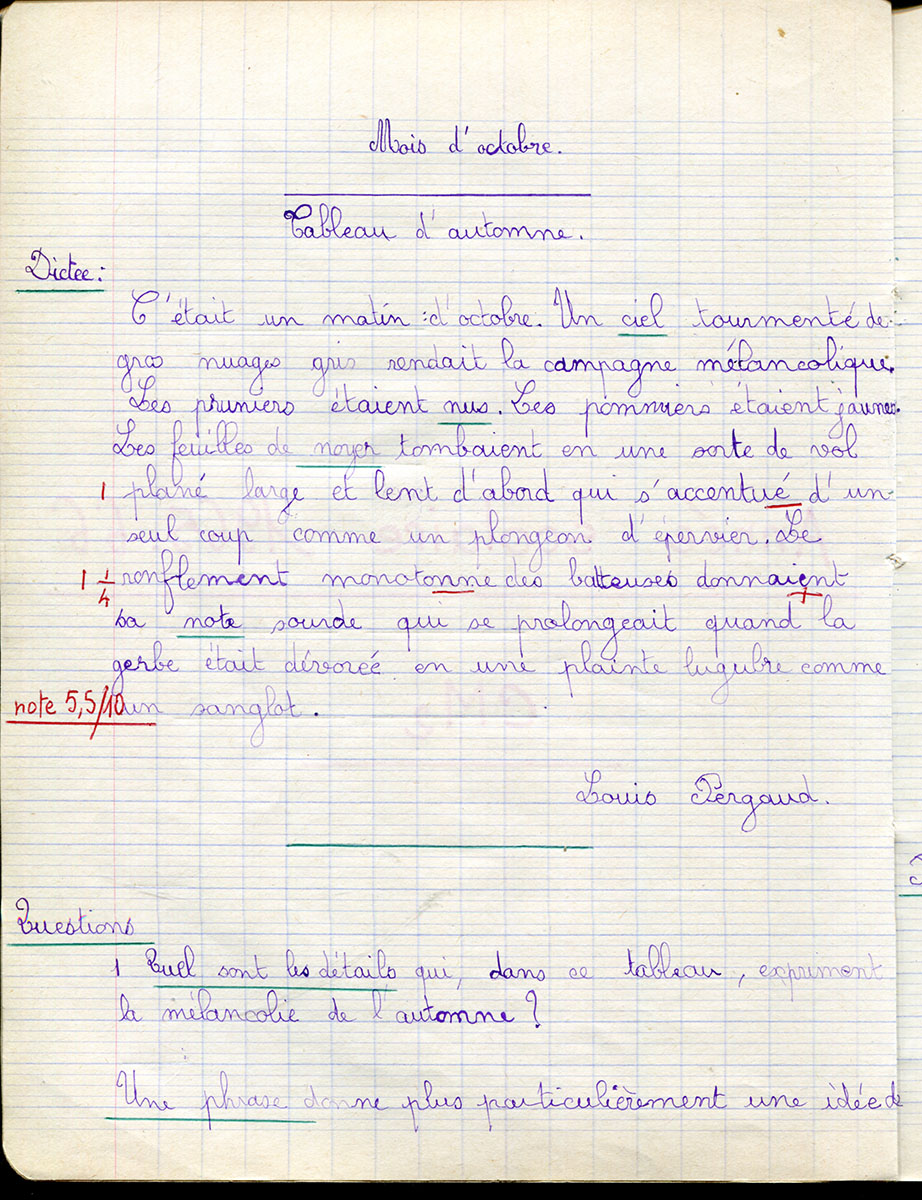 Mois d'octobre.
Tableau d'automne.
Dictée :
C'était un matin d'octobre. Un ciel tourmenté de
gros nuages gris rendait la campagne mélancolique.
Les pruniers étaient nus. Les pommiers étaient jaunes.
Les feuilles de noyer tombaient en une sorte de vol
1 plané large et lent d'abord qui s'accentué d'un
seul coup comme un plongeon d'épervier. Le
1 1/4 ronflement monotonne des batteuses donnaient
sa note sourde qui se prolongeait quand la
gerbe était dévorée en une plainte lugubre comme
note 5,5/10 un sanglot.
Louis Pergaud.
Questions
1 Quel sont les détails qui, dans ce tableau, expriment
la mélancolie de l'automne ?
Une phrase donne plus particulièrement une idée de